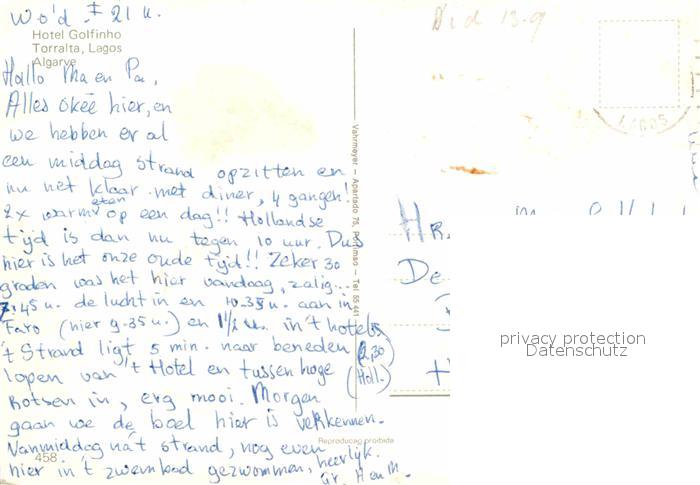 Wo'd. ± 21 u.
Hotel Golfinho
Torralta, Lagos
Algarve
Hallo Ma en Pa,
Alles okeé hier, en
we hebben er al
een middag strand opzitten en
nu net klaar met diner, 4 gangen!
2x warm eten op een dag!! Hollandse
tijd is dan nu tegen 10 uur. Dus
hier is het onze oude tijd!! Zeker 30
graden was het hier vandaag, zalig...
7.45 u. de lucht in en 10.35 u. aan in
Faro (hier 9.35 u.) en 1½ u. in 't hotel
't Strand ligt 5 min. naar beneden (2,30
lopen van 't Hotel en tussen hoge Holl.)
Rotsen in, erg mooi. Morgen
gaan we de boel hier is verkennen.
Vanmiddag na 't strand, nog even
hier in 't zwembad gezwommen, heerlijk.
Gr. H en M.
458
Reproducao proibida
Vahrmeyer – Apartado 75, Portimao – Tel 55 441
13-9
HR.
De
privacy protection
Datenschutz